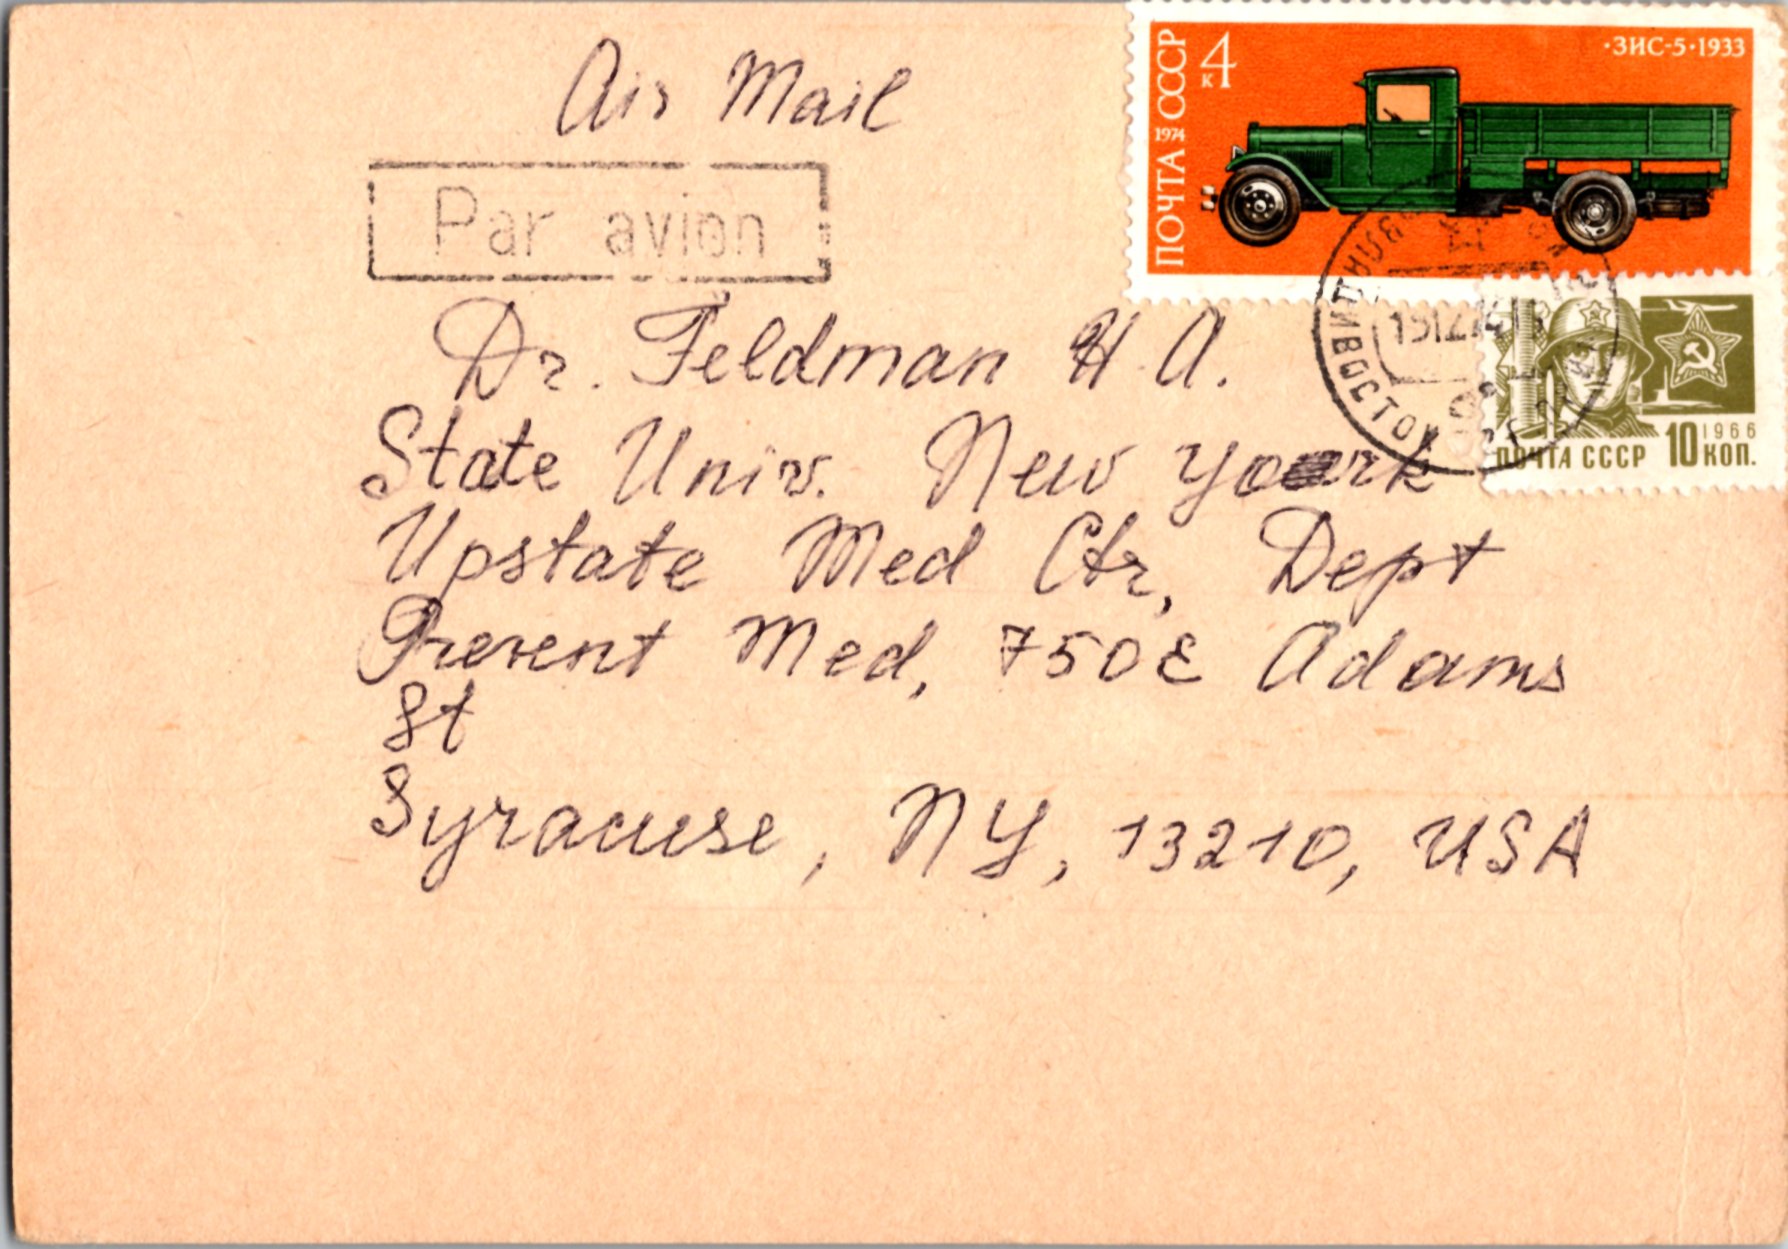 Air Mail
Par avion
ПОЧТА СССР
1974
4 к
·ЗИС-5·1933
ВЛАДИВОСТОК
ПОЧТА СССР 10 КОП.
1966
Dr. Feldman H. A.
State Univ. New York
Upstate Med Ctr, Dept
Prevent Med, 750 E Adams
St
Syracuse, NY, 13210, USA